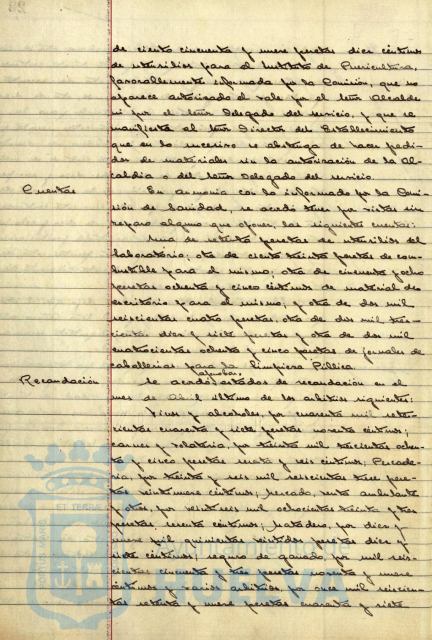 de ciento cincuenta y nueve pesetas diez céntimos
de utensilios para el Instituto de Puericultura,
favorablemente informada por la Comisión, que no
aparece autorizado el vale por el Señor Alcalde
ni por el Señor Delegado del servicio, y que se
manifieste al Señor Director del Establecimiento
que en lo sucesivo se abstenga de hacer pedi-
dos de materiales sin la autorización de la Al-
caldía o del Señor Delegado del servicio.
Cuentas
En armonía con lo informado por la Comi-
sión de Sanidad, se acordó tener por vistas sin
reparo alguno que oponer, las siguientes cuentas:
Una de setenta pesetas de utensilios del
laboratorio; otra de ciento treinta pesetas de com-
bustible para el mismo; otra de cincuenta y ocho
pesetas ochenta y cinco céntimos de material de
escritorio para el mismo; y otra de dos mil
seiscientas cuatro pesetas, otra de dos mil tres-
cientas diez y siete pesetas y otra de dos mil
cuatrocientas ochenta y cinco pesetas de jornales de
caballerías para la limpieza Pública.
Recaudación
Se acordó aprobar estados de recaudación en el
mes de Abril último de los arbitrios siguientes:
Vinos y alcoholes, por cuarenta mil sete-
cientas cuarenta y siete pesetas noventa céntimos;
carnes y volatería, por treinta mil trescientas ochen-
ta y cinco pesetas y seis céntimos; Pescade-
ría, por treinta y seis mil seiscientas trece pese-
tas veintinueve céntimos; mercado, venta ambulante
y otros, por veintiseis mil ochocientas treinta y tres
pesetas, céntimos; Matadero, por diez y
nueve mil quinientas veintidos pesetas diez y
siete céntimos; seguro de ganado, por mil seis-
cientas cincuenta y tres pesetas noventa y nueve
céntimos y varios arbitrios, por once mil seiscien-
tas setenta y nueve pesetas cuarenta y siete
ET TERRÆ
HUELVA